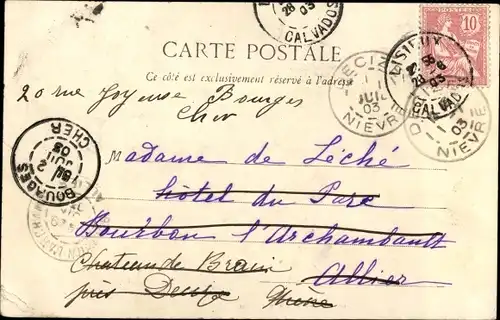 CALVADOS
28 03
CARTE POSTALE
Ce côté est exclusivement réservé à l'adresse
DECIZE
1
JUIL
03
NIEVRE
LISIEUX
28
03
CALVADOS
POSTES
10
03
NIEVRE
20 rue Joyeuse Bourges
Cher
BOURGES
2
JUIL
03
CHER
Madame de Léché
hôtel du Parc
Bourbon l'Archambault
Allier
Chateau de Brain
près Decize Nièvre